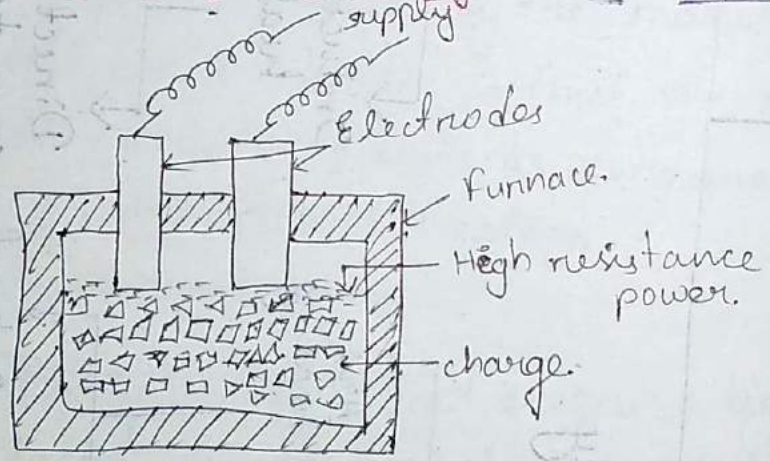 supply
Electrodes
Furnace.
High resistance
power.
charge.